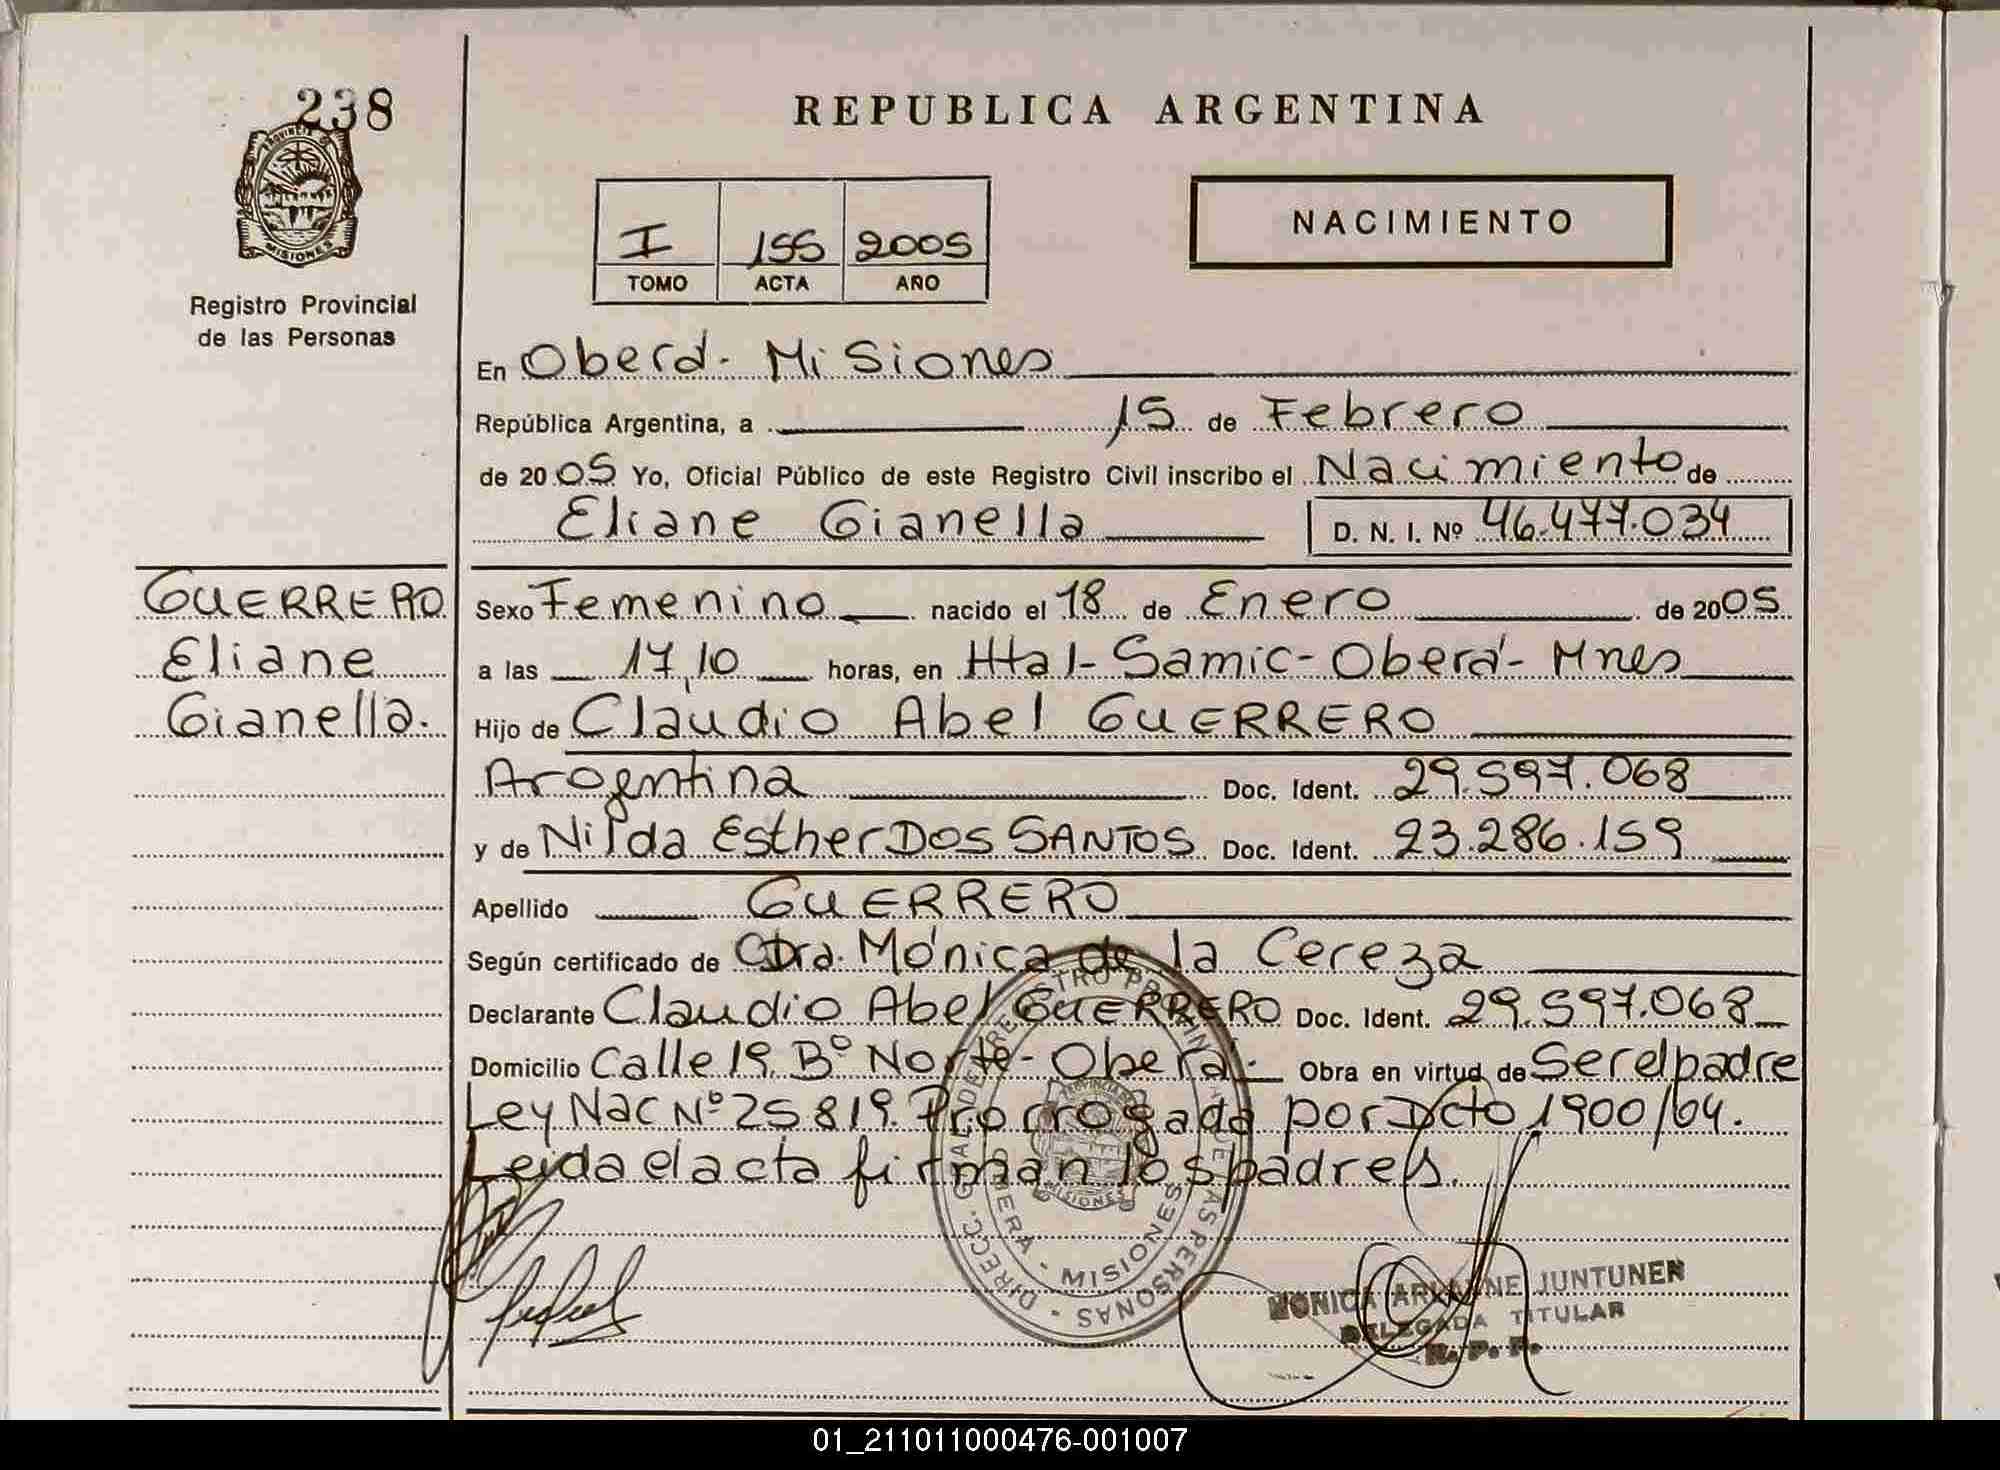 238
PROVINCIA DE
MISIONES
Registro Provincial
de las Personas
REPUBLICA ARGENTINA
I 155 2005
TOMO ACTA AÑO
NACIMIENTO
En Oberá- Misiones
República Argentina, a 15 de Febrero
de 2005 Yo, Oficial Público de este Registro Civil inscribo el Nacimiento de
Eliane Gianella D. N. I. Nº 46.477.034
GUERRERO
Eliane
Gianella.
Sexo Femenino nacido el 18 de Enero de 2005
a las 17,10 horas, en Htal- Samic- Oberá- Mnes
Hijo de Claudio Abel GUERRERO
Argentina Doc. Ident. 29.597.068
y de Nilda Esther DOS SANTOS Doc. Ident. 23.286.159
Apellido GUERRERO
Según certificado de Dra. Mónica de la Cereza
Declarante Claudio Abel GUERRERO Doc. Ident. 29.597.068
Domicilio Calle 19. Bº Norte- Oberá- Obra en virtud de Ser el padre
Ley Nac Nº 25819. Prorrogada por Dcto 1900/04.
Leida el acta firman los padres.
DIRECC. GRAL. DE REGISTRO PROVINCIAL DE LAS PERSONAS
OBERA - MISIONES
MONICA ARIANNE JUNTUNEN
DELEGADA TITULAR
R. P. P.
01_211011000476-001007